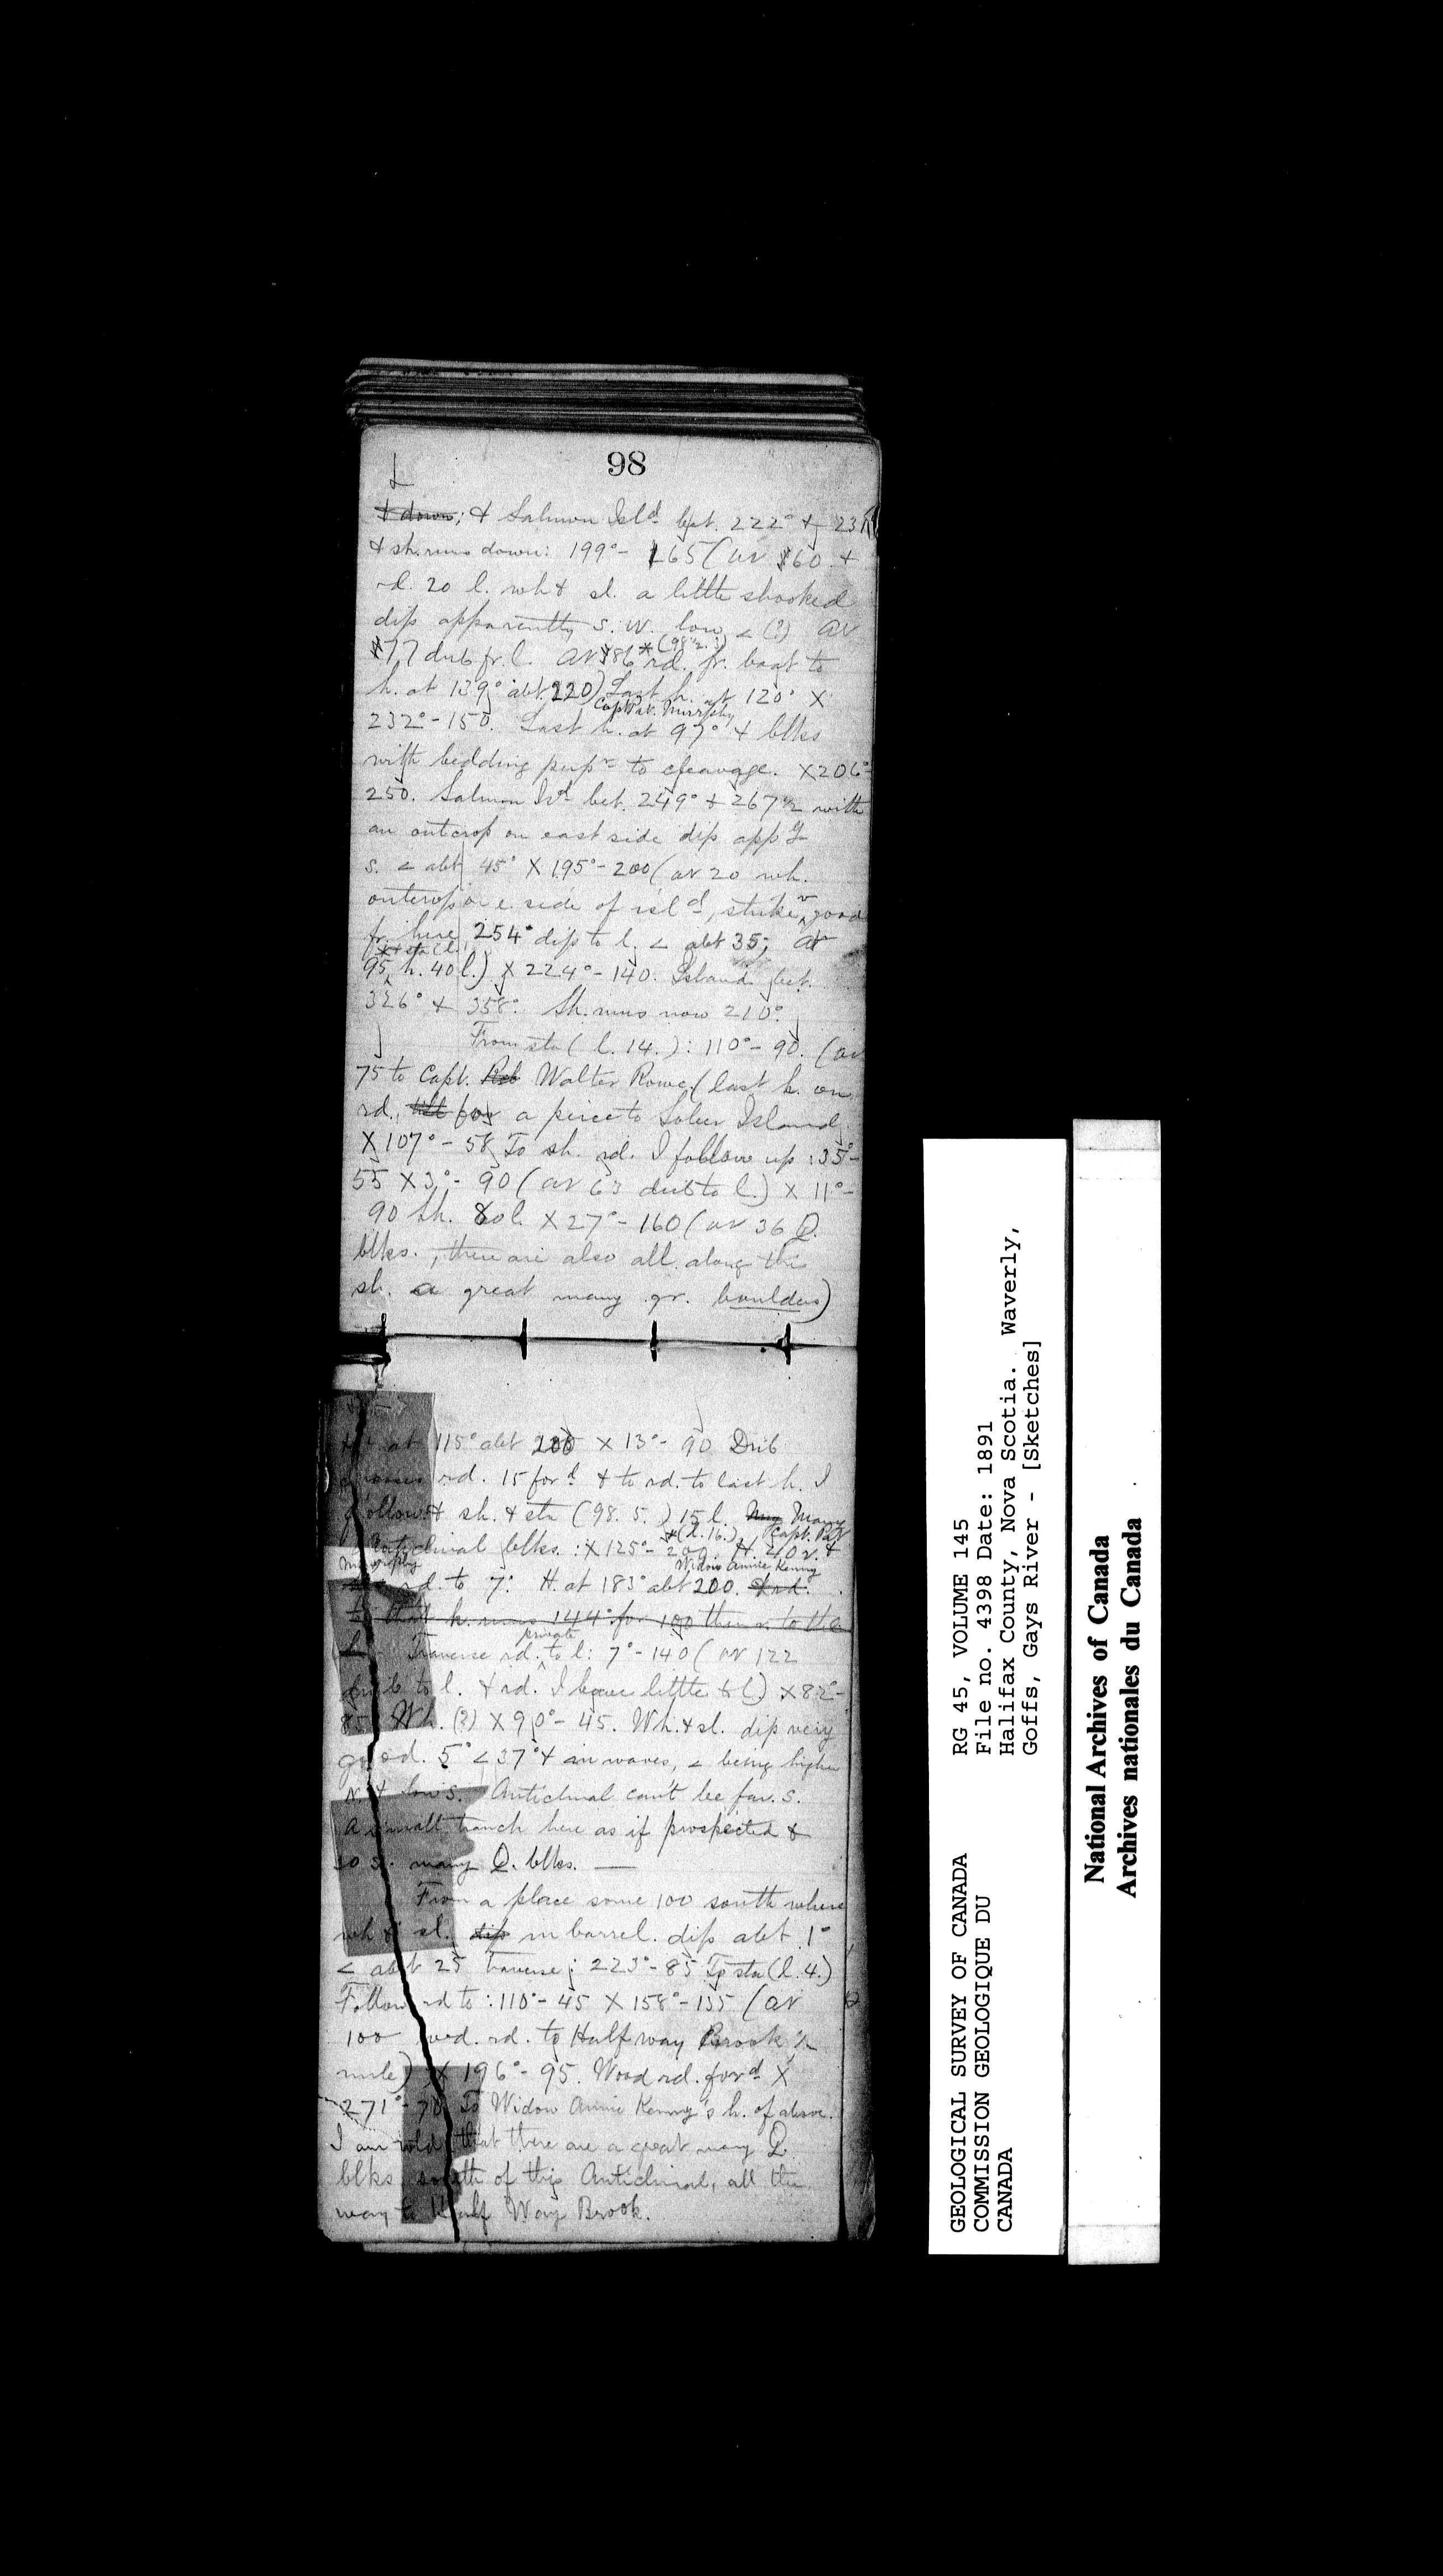 98
& down; & Salmon Isl^d bet. 222° & 231
& sh. runs down: 199° - 165 (av 160 +
rd. 20 l. wh & sl. a little shooked
dip apparently s. w. low < (?) av
177 drib fr. l. av 186 *(98½.:) rd. fr. boat to
h. at 139° abt. 220) Last h. at 120° X
Capt Pat. Murphy
232° - 150. Last h. at 97° & blks
with bedding perp^r to cleavage. X 206° -
250. Salmon Isl^d bet. 249° & 267½ with
an outcrop on east side dip app^y
s. < abt 45° X 195° - 200 (av 20 wh.
outcrop on e. side of isl^d, strike v good
fr. here 254° dip to l. < abt 35; av
95, h. 40 l.) X 224° - 140. Island bet.
326° & 358°. Sh. runs now 210°.
From sta (l. 14.): 110° - 90. (av
75 to Capt. Rob Walter Rowe (last h. on
rd. till for a piece to Sober Island
X 107° - 58 To sh. rd. I follow up: 35° -
55 X 3° - 90 (av 63 drib to l.) X 11° -
90 Sh. 80 l. X 27° - 160 (av 36 Q.
blks., there are also all along this
sh. a great many gr. boulders)
at 115° abt 200 X 13° - 90 Drib
crosses rd. 15 for^d & to rd. to last h. I
follow & sh. & sta (98. 5.) 15 l. Many
*(l. 16.) Capt. Pat
Anticlinal blks.: X 125° - 200. H. 40 r. &
Murphy Widow Annie Kenny
rd. to 7: H. at 183° abt 200. & rd.
to that h. runs 144° for 100 then r. to the
private
h. Traverse rd. to l: 7° - 140 (av 122
drib to l. & rd. I leave little to l.) X 82° -
85 Wh. (?) X 90° - 45. Wh. & sl. dip very
good. 5° < 37° & in waves, < being higher
N. & low S. Anticlinal can't be far. s.
A small trench here as if prospected &
so s. many Q. blks. —
From a place some 100 south where
wh & sl. dip in barrel. dip abt 1°
< abt 25 traverse: 223° - 85 To sta (l. 4.)
Follow rd to: 110° - 45 X 158° - 135 (av
100 wd. rd. to Half way Brook ½
mile) X 196° - 95. Wood rd. for^d X
271° - 70 To Widow Annie Kenny's h. of above.
I am told that there are a great many Q.
blks south of this Anticlinal, all the
way to Half Way Brook.
GEOLOGICAL SURVEY OF CANADA
COMMISSION GEOLOGIQUE DU
CANADA
RG 45, VOLUME 145
File no. 4398 Date: 1891
Halifax County, Nova Scotia. Waverly,
Goffs, Gays River - [Sketches]
National Archives of Canada
Archives nationales du Canada